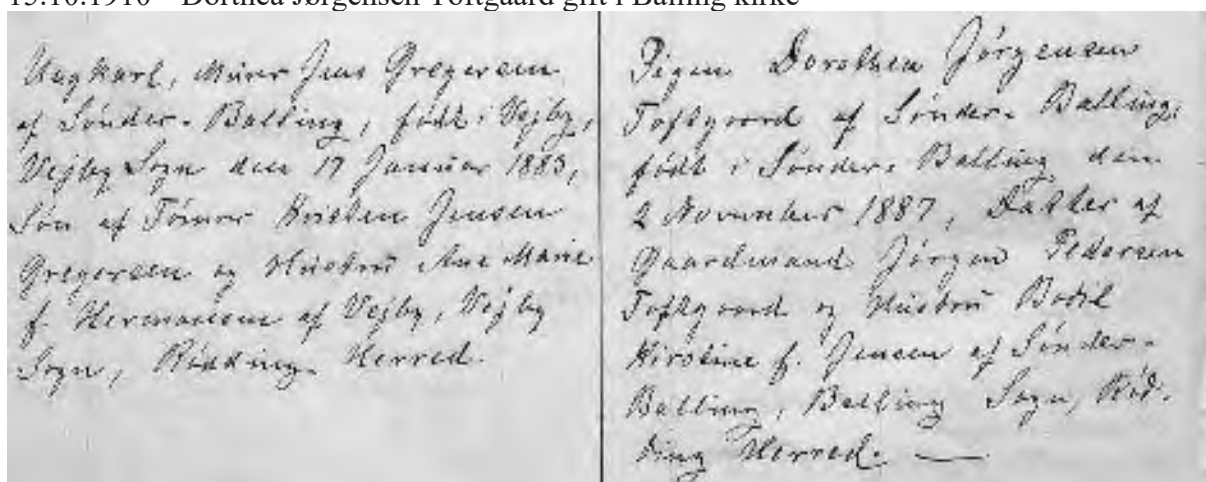 15.10.1910 Dorthea Jørgensen Toftgaard gift i Balling kirke
Ungkarl, Murer Jens Gregersen
af Sønder-Balling, født i Vejby,
Vejby Sogn den 17 Januar 1883,
Søn af Tømrer Kristen Jensen
Gregersen og Hustru Ane Marie
f. Hermansen af Vejby, Vejby
Sogn, Rødding Herred.
Pigen Dorothea Jørgensen
Toftgaard af Sønder-Balling,
født i Sønder-Balling den
2 November 1887, Datter af
Gaardmand Jørgen Pedersen
Toftgaard og Hustru Bodil
Kirstine f. Jensen af Sønder-
Balling, Balling Sogn, Rød-
ding Herred. —